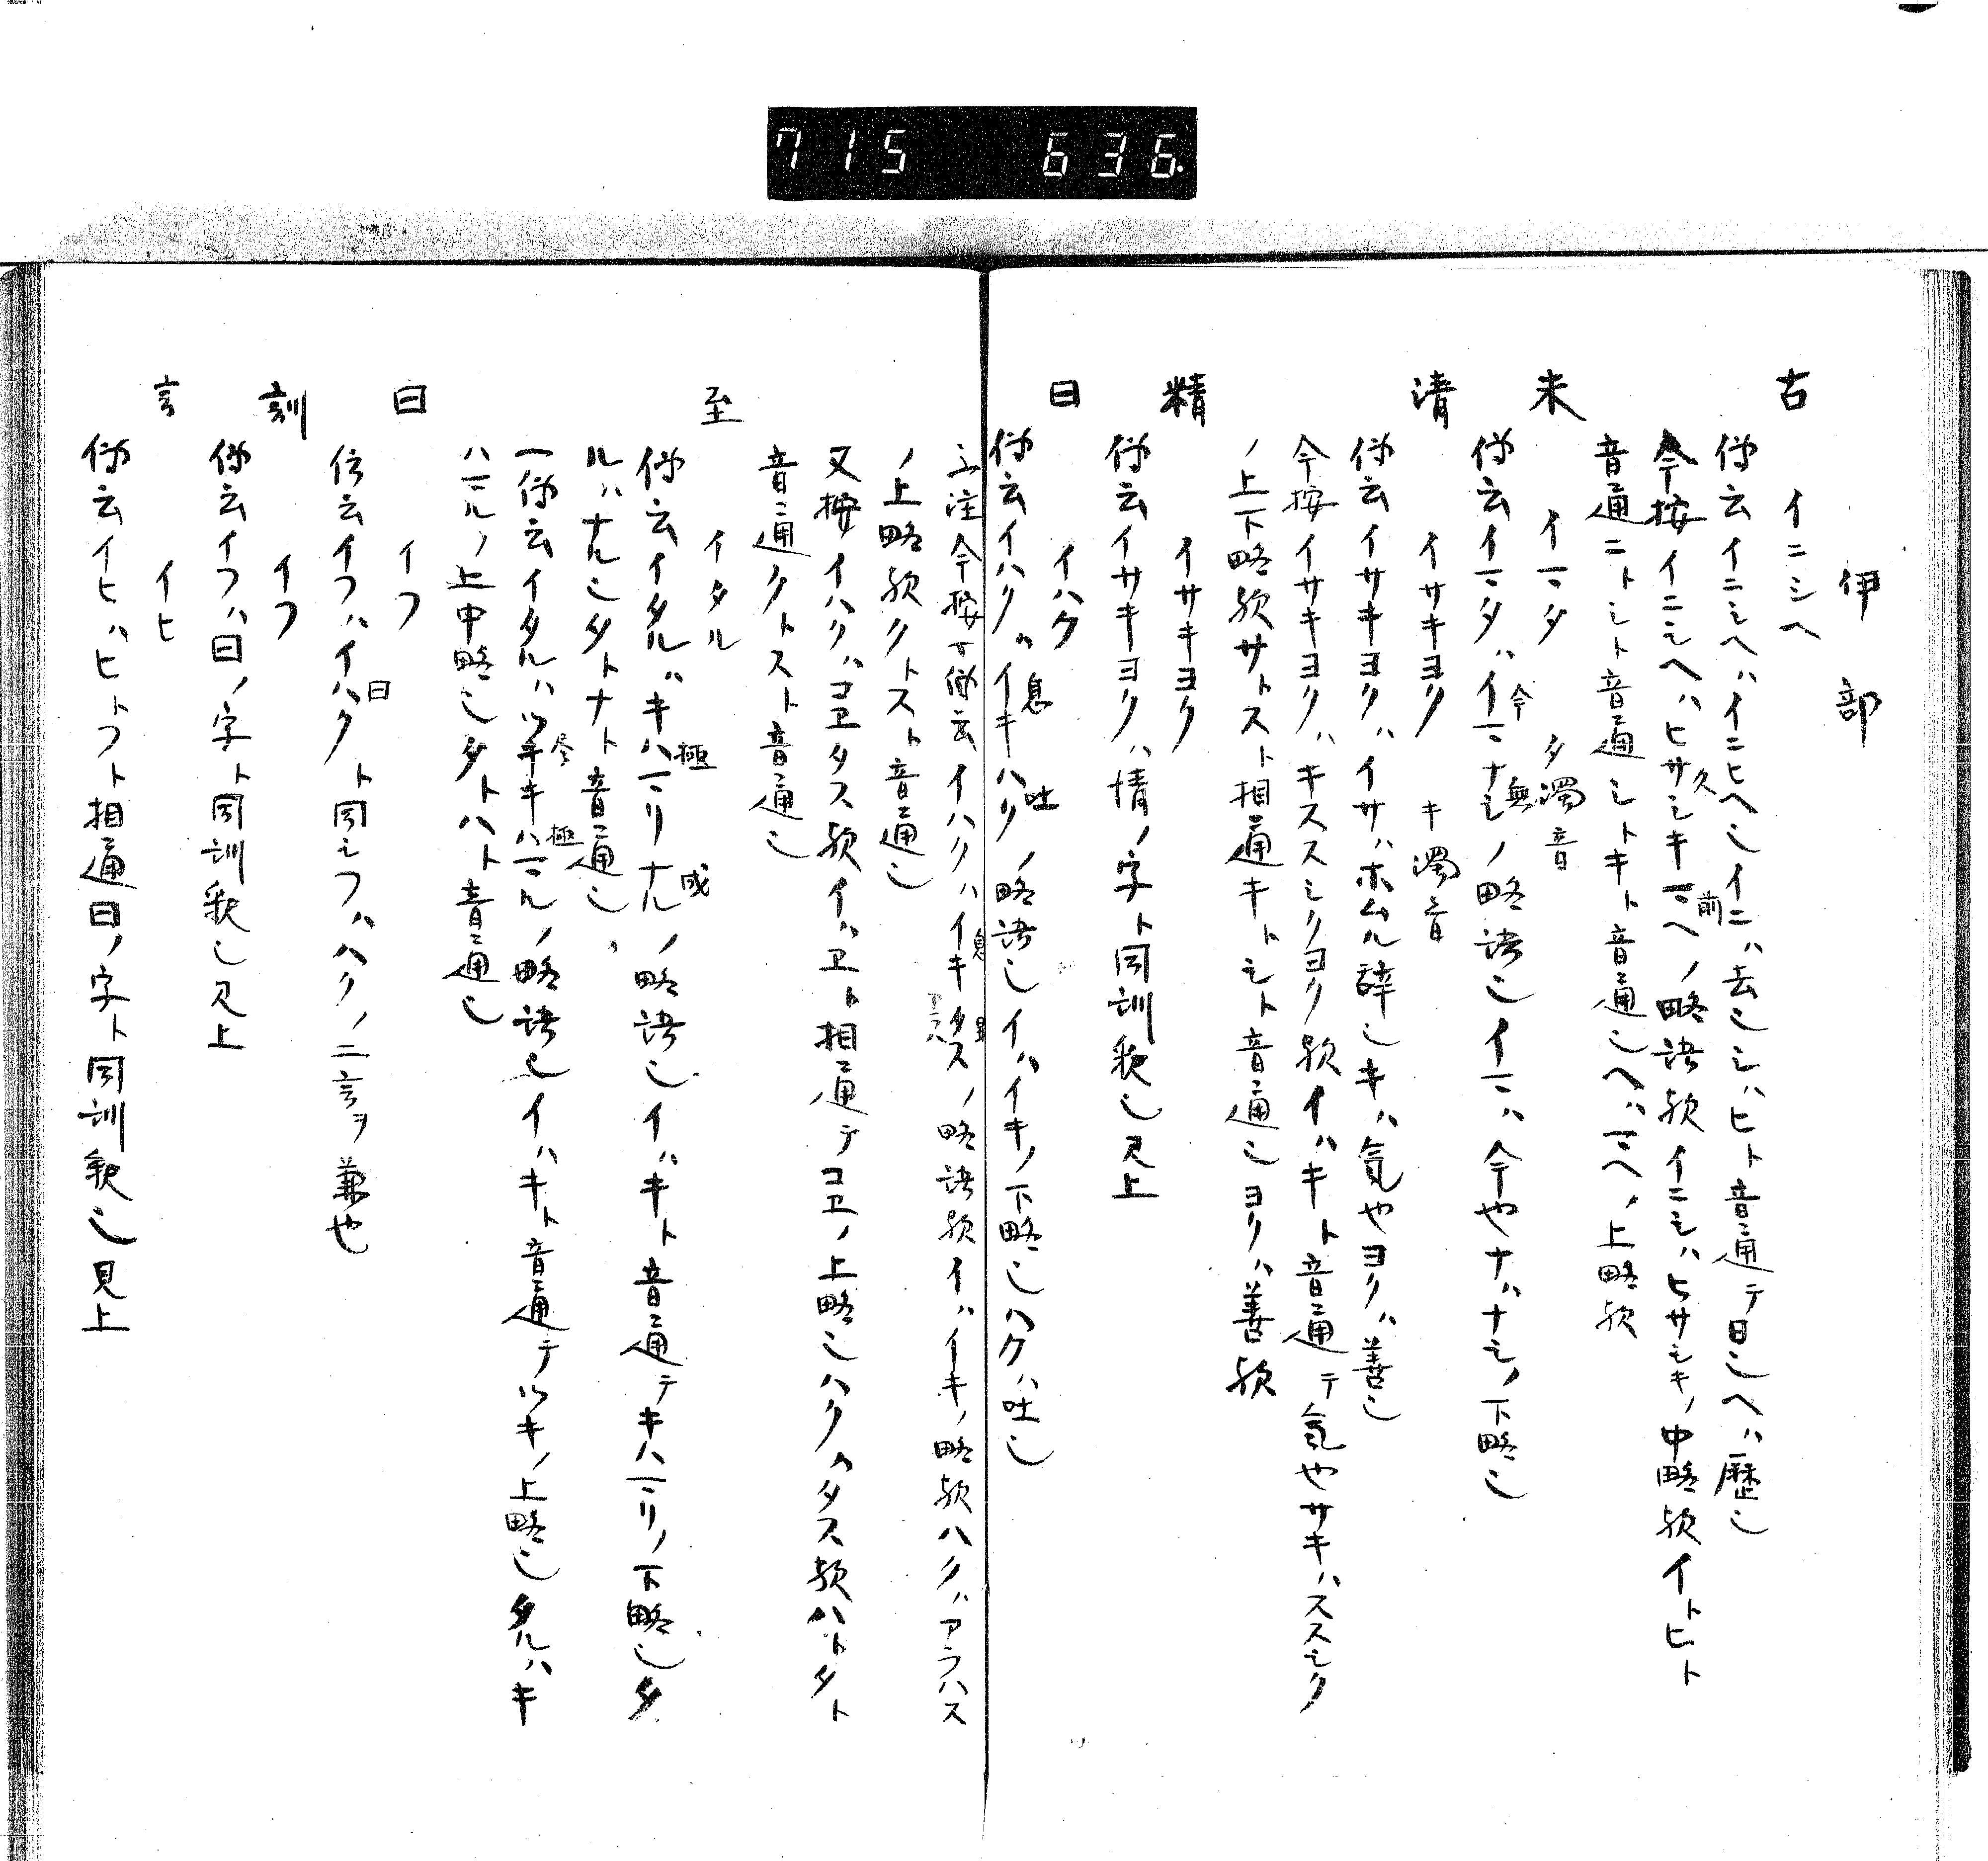 715 636.
伊部
古 イニシヘ
師云イニシヘハイニヒヘ也イニハ去也シハヒト音通テ日也ヘハ歴也
今按イニシヘハヒサシキマヘノ略語歟イニシハヒサシキノ中略歟イトヒト
久 前
音通ニトシト音通シトキト音通也ヘハマヘノ上略歟
未 イマタ タ濁音
師云イマタハイマナシノ略語也イマハ今也ナハナシノ下略也
今 無
清 イサキヨク キ濁音
師云イサキヨクハイサハホムル辞也キハ気也ヨクハ善也
今按イサキヨクハキススシクヨク歟イハキト音通テ気也サキハススシク
ノ上下略歟サトスト相通キトシト音通也ヨクハ善歟
精 イサキヨク
師云イサキヨクハ情ノ字ト同訓釈也見上
曰 イハク
師云イハクハイキハクノ略語也イハイキノ下略也ハクハ吐也
息 吐
今按下師云イハクハイキタスノ略語歟イハイキノ略歟ハクハアラハス
息
ノ上略歟クトスト音通也
又按イハクハコヱタス歟イハヱト相通テコヱノ上略也ハクハタス歟ハトタト
音通クトスト音通也
至 イタル
師云イタルハキハマリナルノ略語也イハキト音通テキハマリノ下略也タ
極 成
ルハナル也タトナト音通也
一師云イタルハツキキハマルノ略語也イハキト音通テツキノ上略也タルハキ
尽 極
ハマルノ上中略也タトハト音通也
曰 イフ
師云イフハイハクト同シフハハクノ二言ヲ兼也
曰
訓 イフ
師云イフハ曰ノ字ト同訓釈也見上
言 イヒ
師云イヒハヒトフト相通曰ノ字ト同訓釈也見上